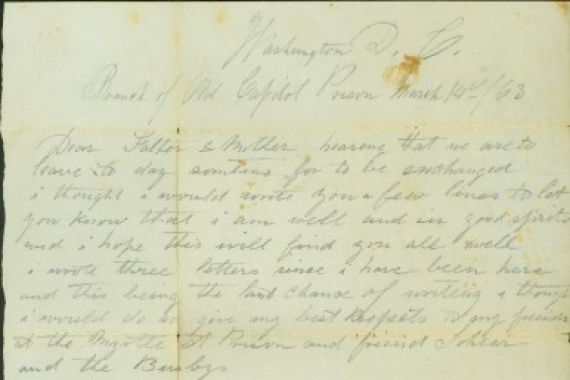 Washington D. C.
Branch of Old Capitol Prison March 14th/63
Dear Father & Mother hearing that we are to
leave to day for to be exchanged
i thought i would wrote you a few lines to let
you know that i am well and in good spirits
and i hope this will find you all well
i wrote three letters since i have been here
and this being the last chance of writeing i though
i would do so give my best Respects to my friends
at the and friend
and the